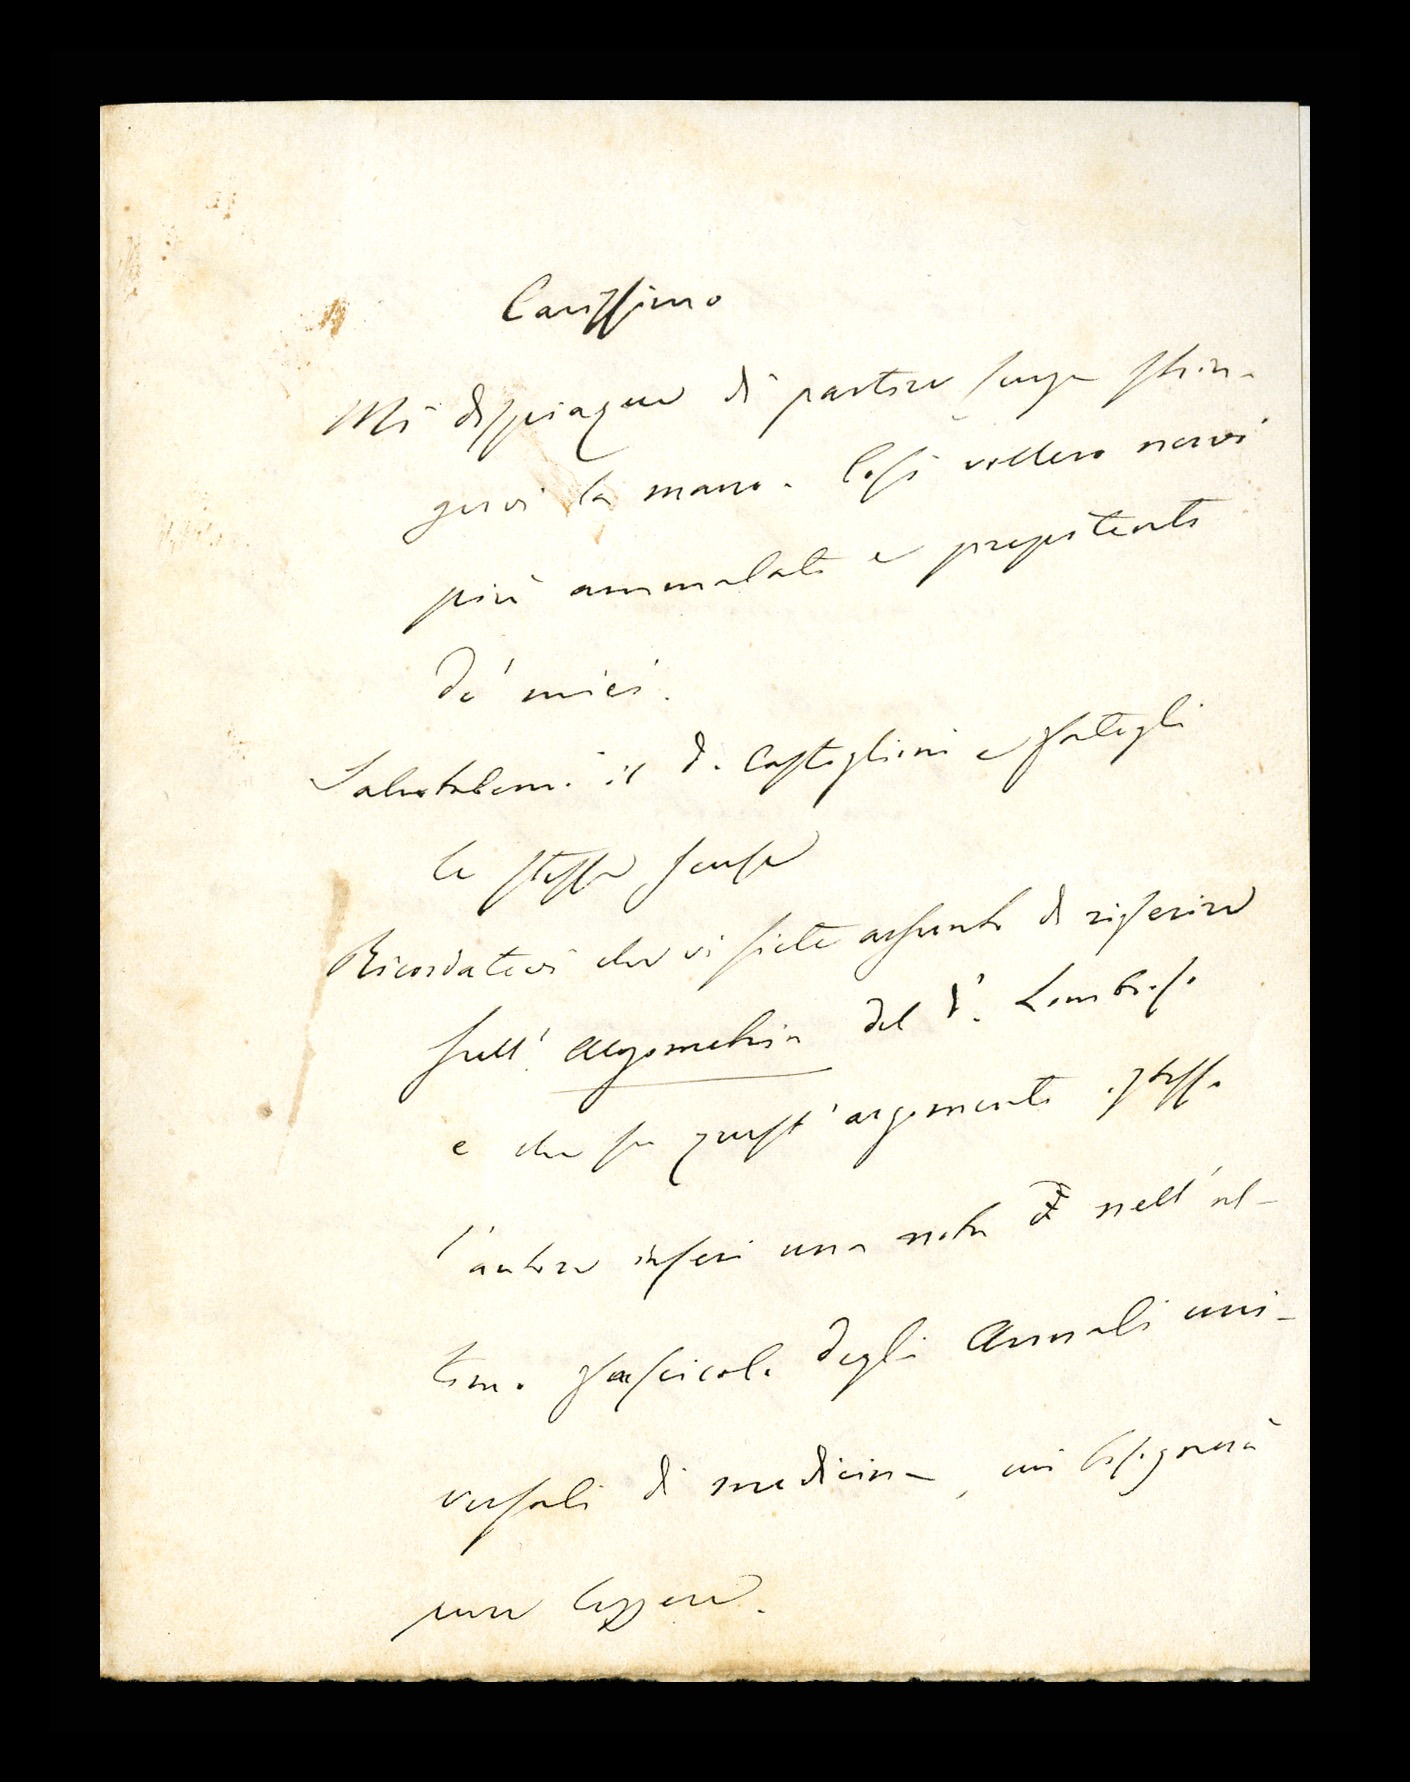 Carissimo
Mi dispiaque di partire senza strin-
gervi la mano. Così vollero nervi
più ammalati e prepotenti
de' miei.
Salutatemi il D. Castiglioni e fategli
le stesse scuse
Ricordatevi che vi siete assunto di riferire
sull' Algometria del Dr. Lombroso
e che su quest' argomento istesso
l'autore inserì una nota nell' ul-
timo fascicolo degli Annali uni-
versali di medicina, cui bisognerà
pure leggere.